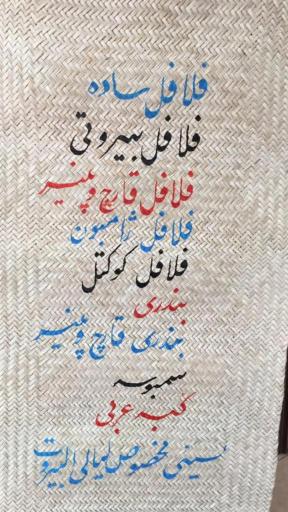 فلافل ساده
فلافل بیروتی
فلافل قارچ و پنیر
فلافل ژامبون
فلافل کوکتل
بندری
بندری قارچ و پنیر
سمبوسه
کبه عربی
سینی مخصوص لیالی البیروت